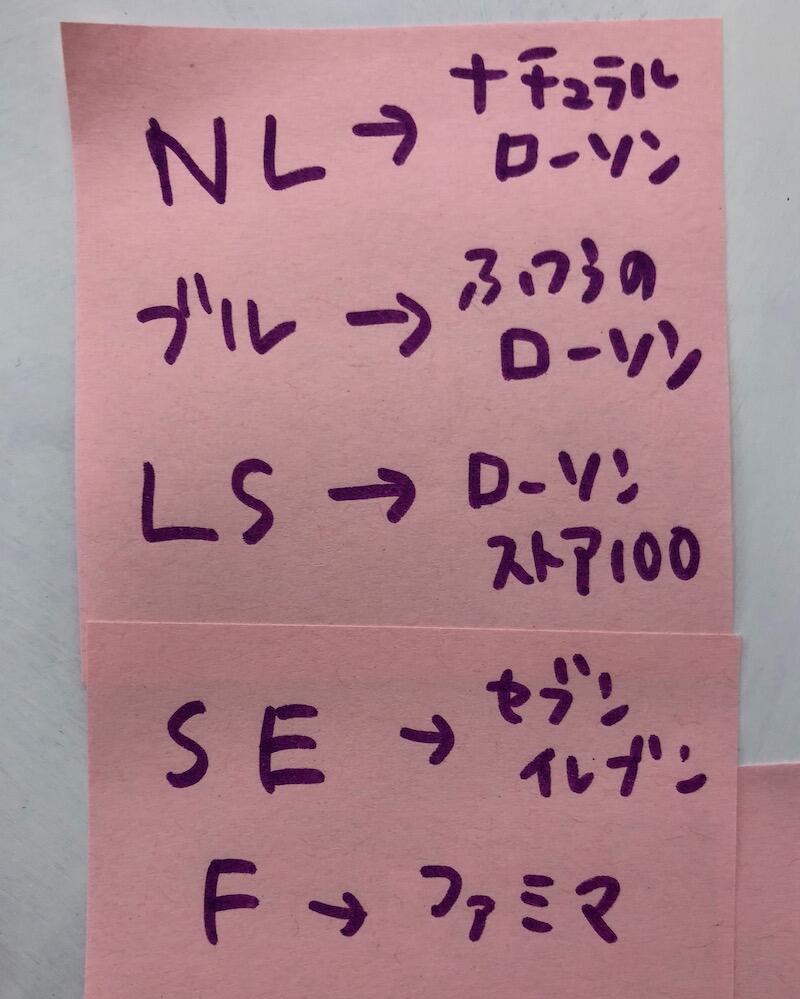 NL → ナチュラル
ローソン
ブル → ふつうの
ローソン
LS → ローソン
ストア100
SE → セブン
イレブン
F → ファミマ